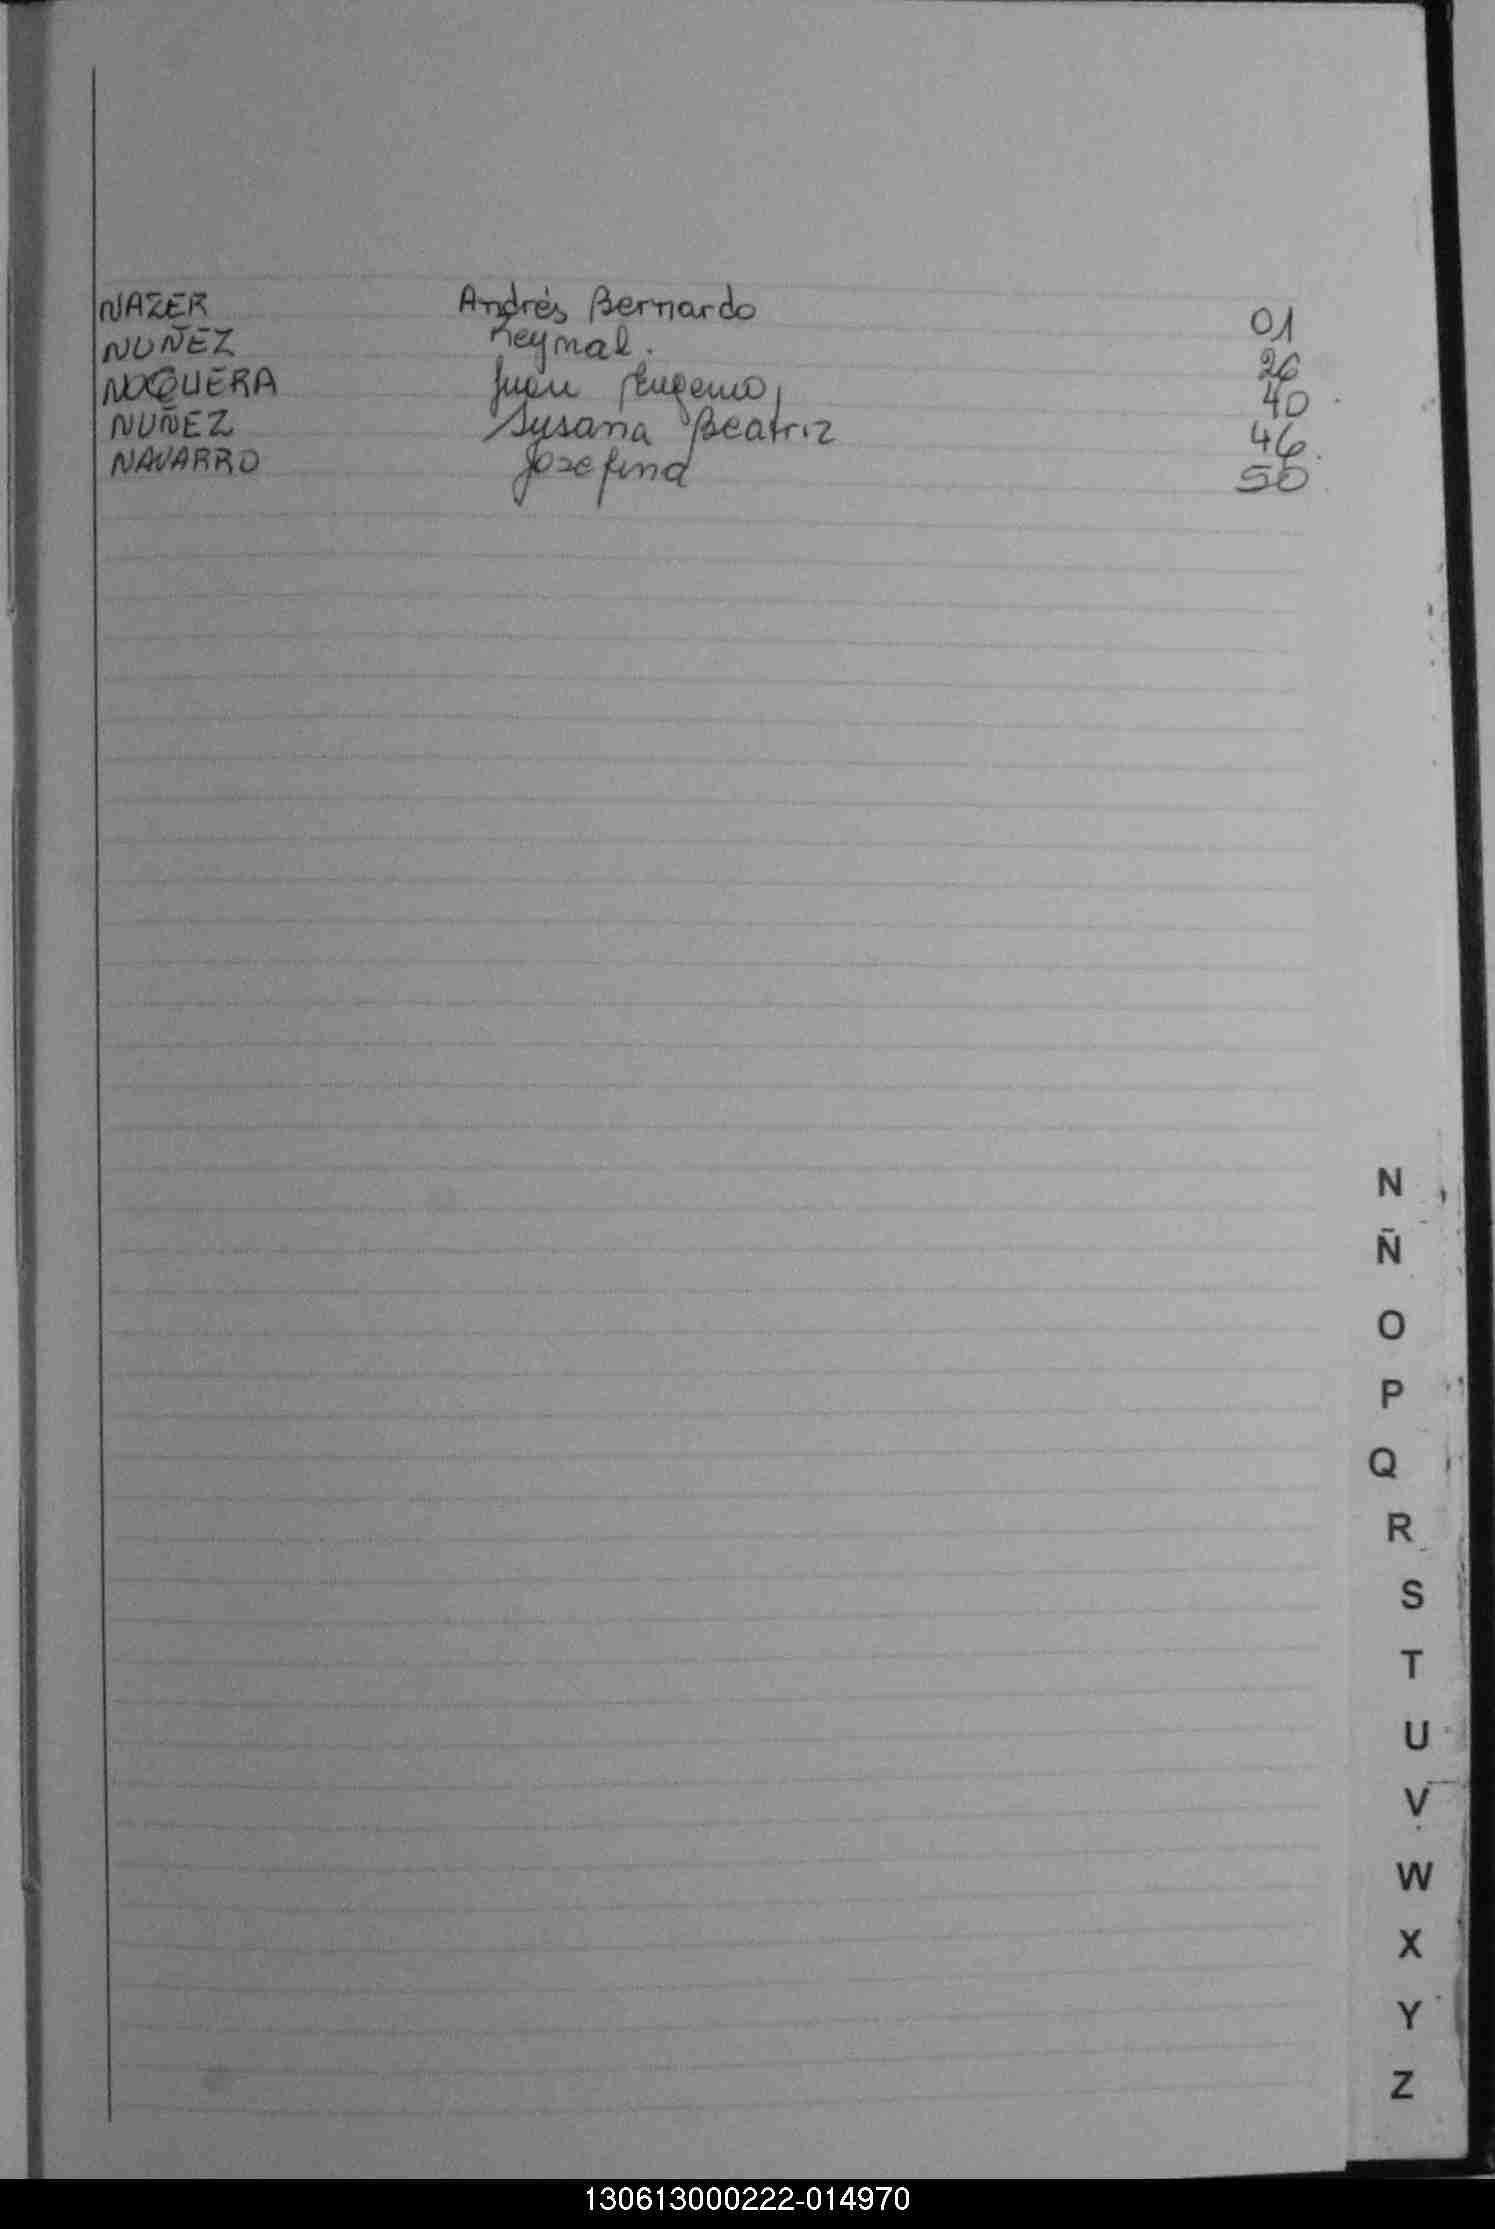 NAZER Andrés Bernardo 01
NUÑEZ Reymal. 26
NOGUERA Juan Eugenio 40
NUÑEZ Susana Beatriz 46
NAVARRO Josefina 50
N
Ñ
O
P
Q
R
S
T
U
V
W
X
Y
Z
130613000222-014970